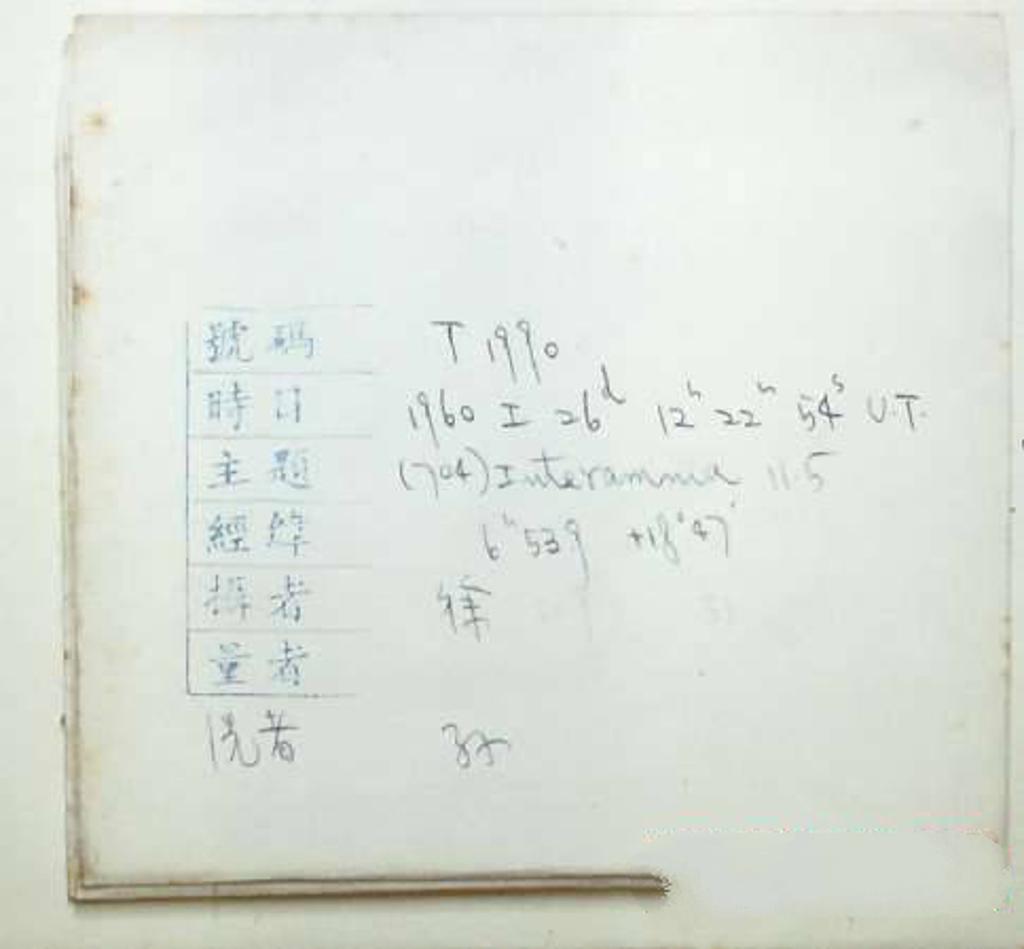 號碼 T 1990
時日 1960 I 26d 12h 22m 54s U.T.
主題 (704) Interamnia 11.5
經緯 6h 53.9 +18° 47'
攝者 徐
量者
洗者 孙